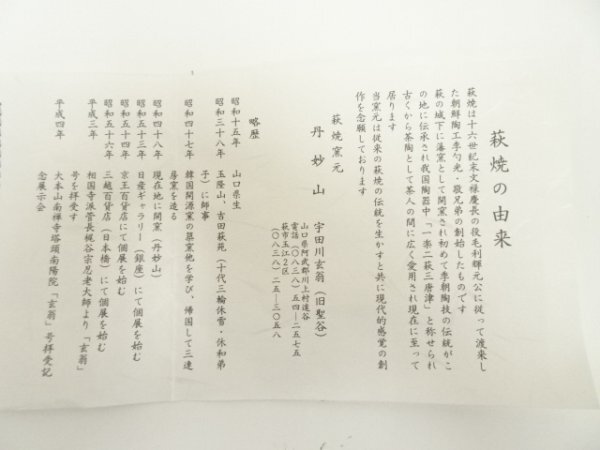 萩焼の由来
萩焼は十六世紀末文禄慶長の役毛利輝元公に従って渡来し
た朝鮮陶工李勺光・敬兄弟の創始したものです
萩の城下に藩窯として開窯され初めて李朝陶技の伝統がこ
の地に伝承され我国陶器中「一楽二萩三唐津」と称せられ
古くから茶陶として茶人の間に広く愛用され現在に至って
居ります
当窯元は従来の萩焼の伝統を生かすと共に現代的感覚の創
作を念願しております
萩焼窯元
丹妙山 宇田川玄翁(旧聖谷)
山口県阿武郡川上村遠谷
電話(〇八三八)五四―二五七五
萩市玉江2区
(〇八三八)二五―三〇五八
略歴
昭和十五年 山口県生
昭和三十八年 玉隆山、吉田萩苑(十代三輪休雪・休和弟
子)に師事
昭和四十七年 韓国聞慶窯の築窯他を学び、帰国して三連
房窯を造る
昭和四十八年 現在地に開窯(丹妙山)
昭和五十三年 日産ギャラリー(銀座)にて個展を始む
昭和五十四年 京王百貨店にて個展を始む
昭和五十六年 三越百貨店(日本橋)にて個展を始む
平成三年 相国寺派管長梶谷宗忍老大師より「玄翁」
号を拝受す
平成四年 大本山南禅寺塔頭南陽院「玄翁」号拝受記
念展示会